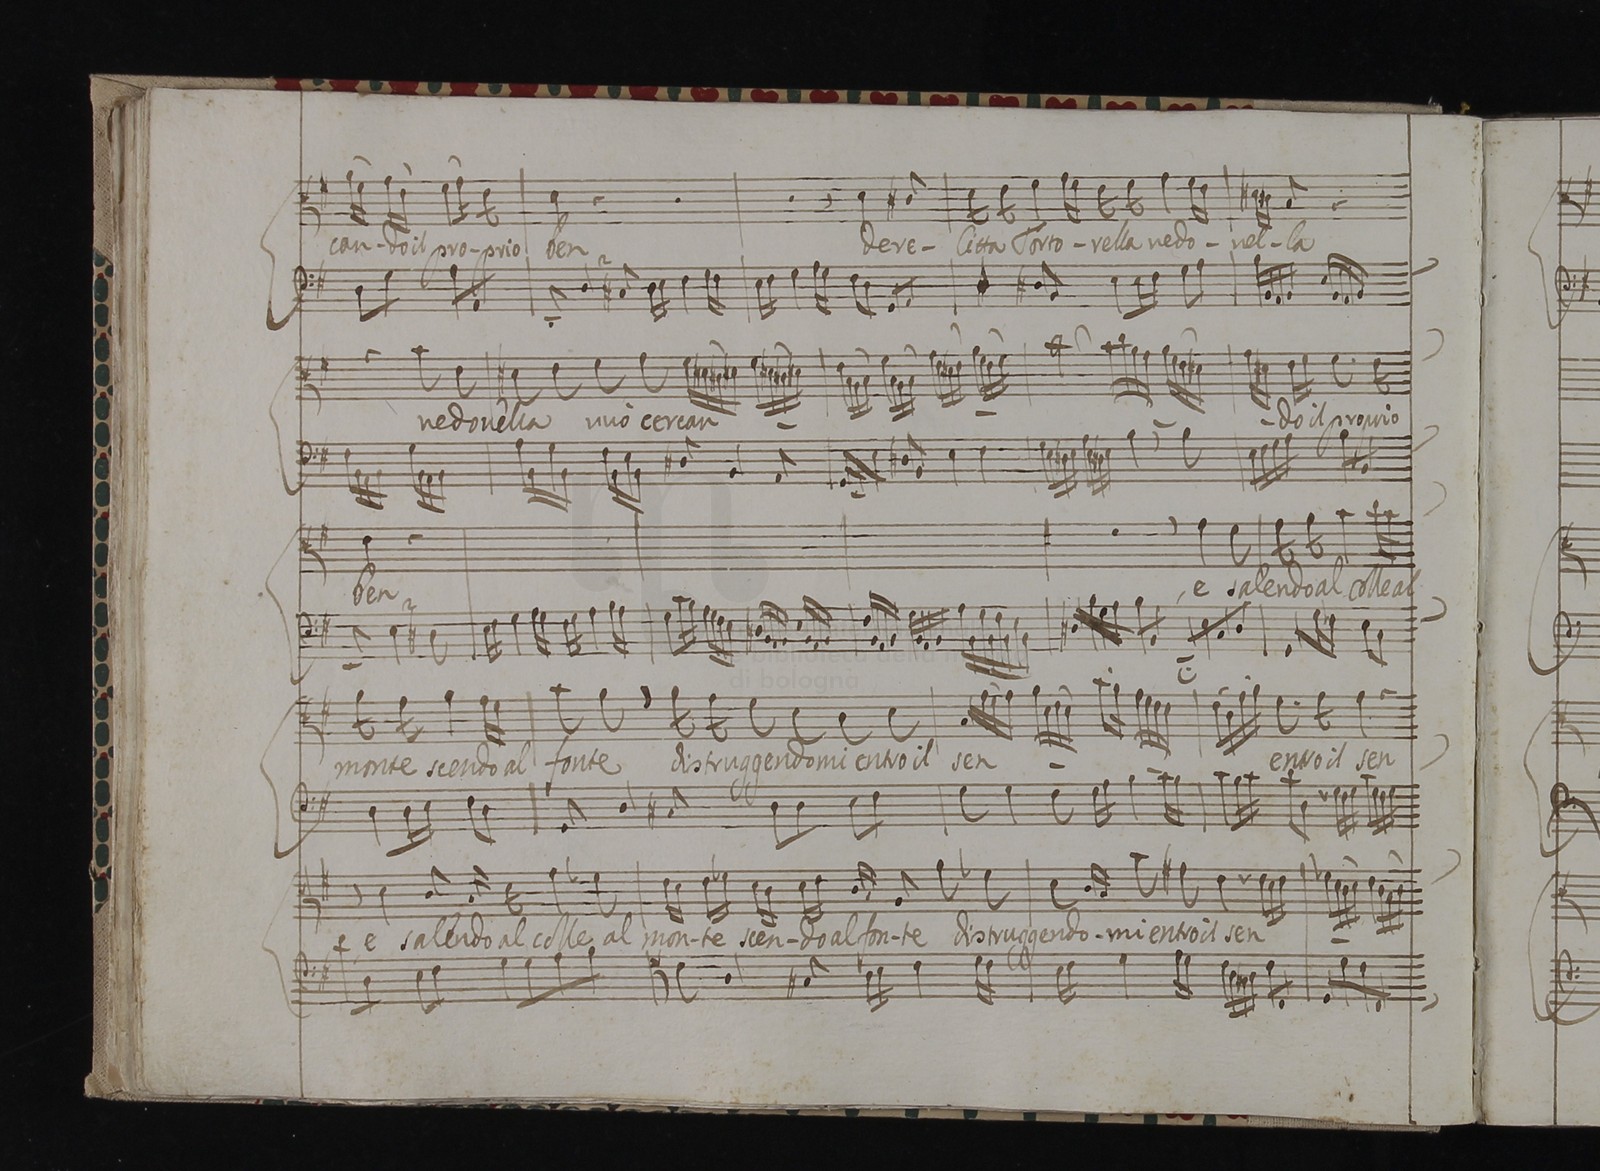 can-do il pro-prio ben dere-litta Torto-rella vedo-vel-la
vedovella vuò cercan -do il proprio
ben e salendo al colle al
monte scendo al fonte distruggendomi entro il sen entro il sen
e e salendo al colle al mon-te scen-do al fon-te distruggendo-mi entro il sen
biblioteca della mu
di bologna